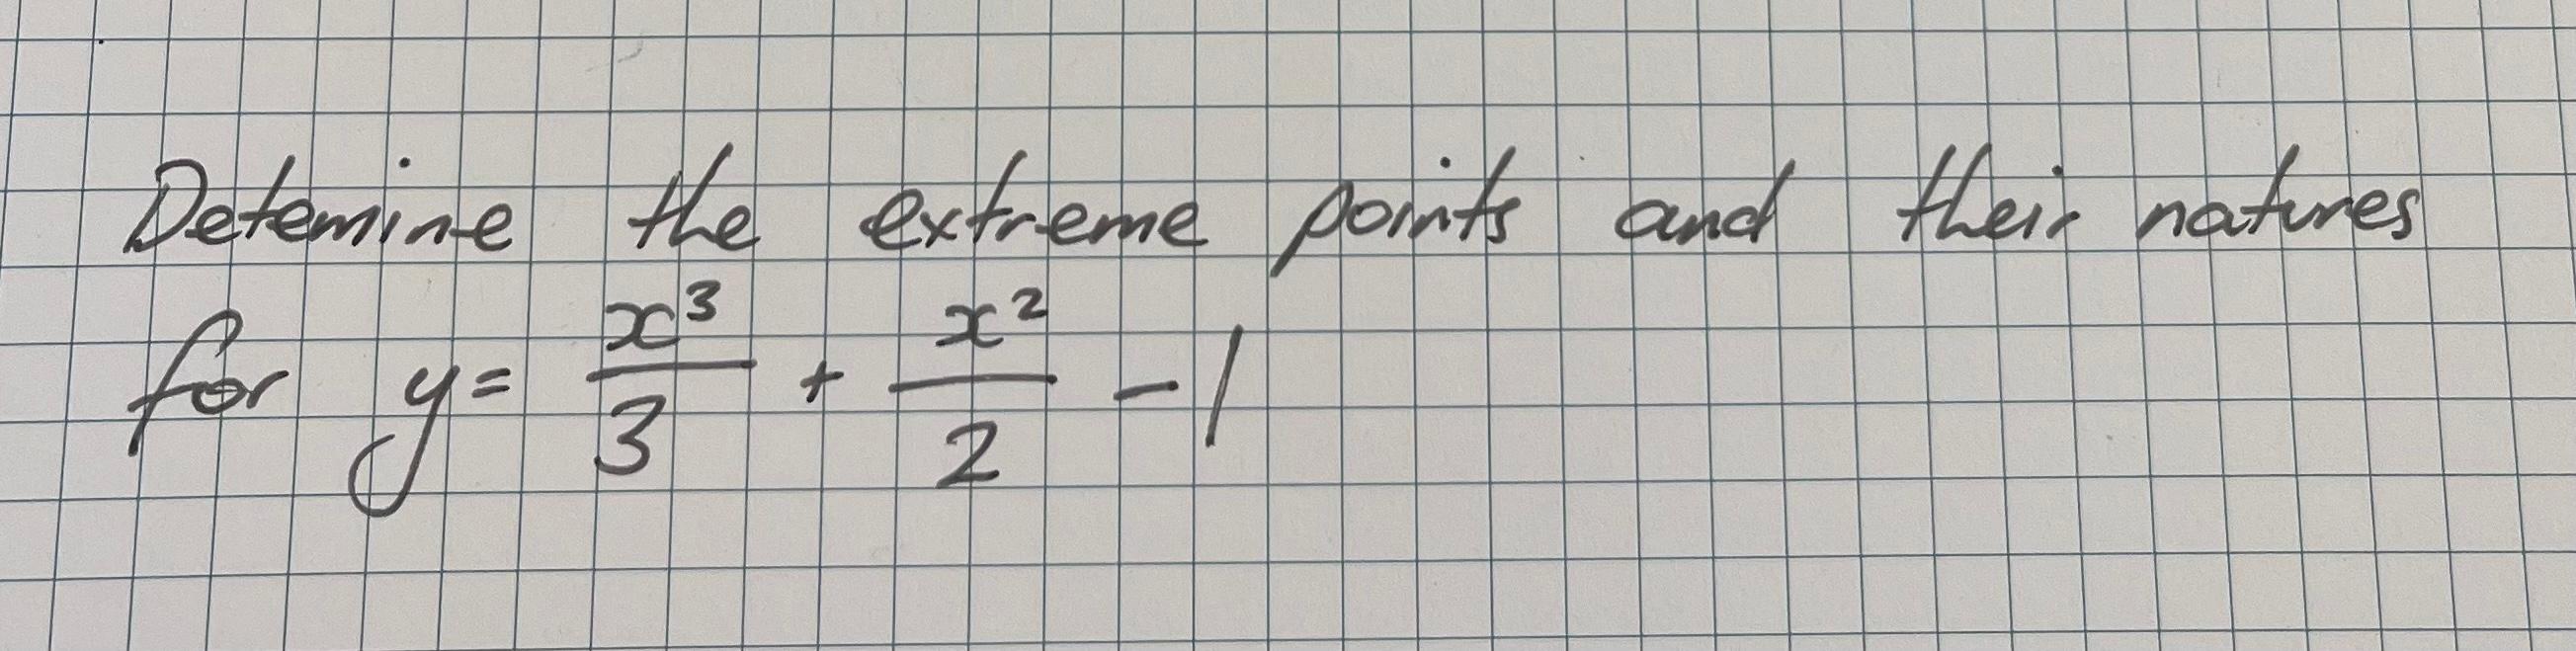 Detemine the extreme points and their natures
for y = x³/3 + x²/2 - 1